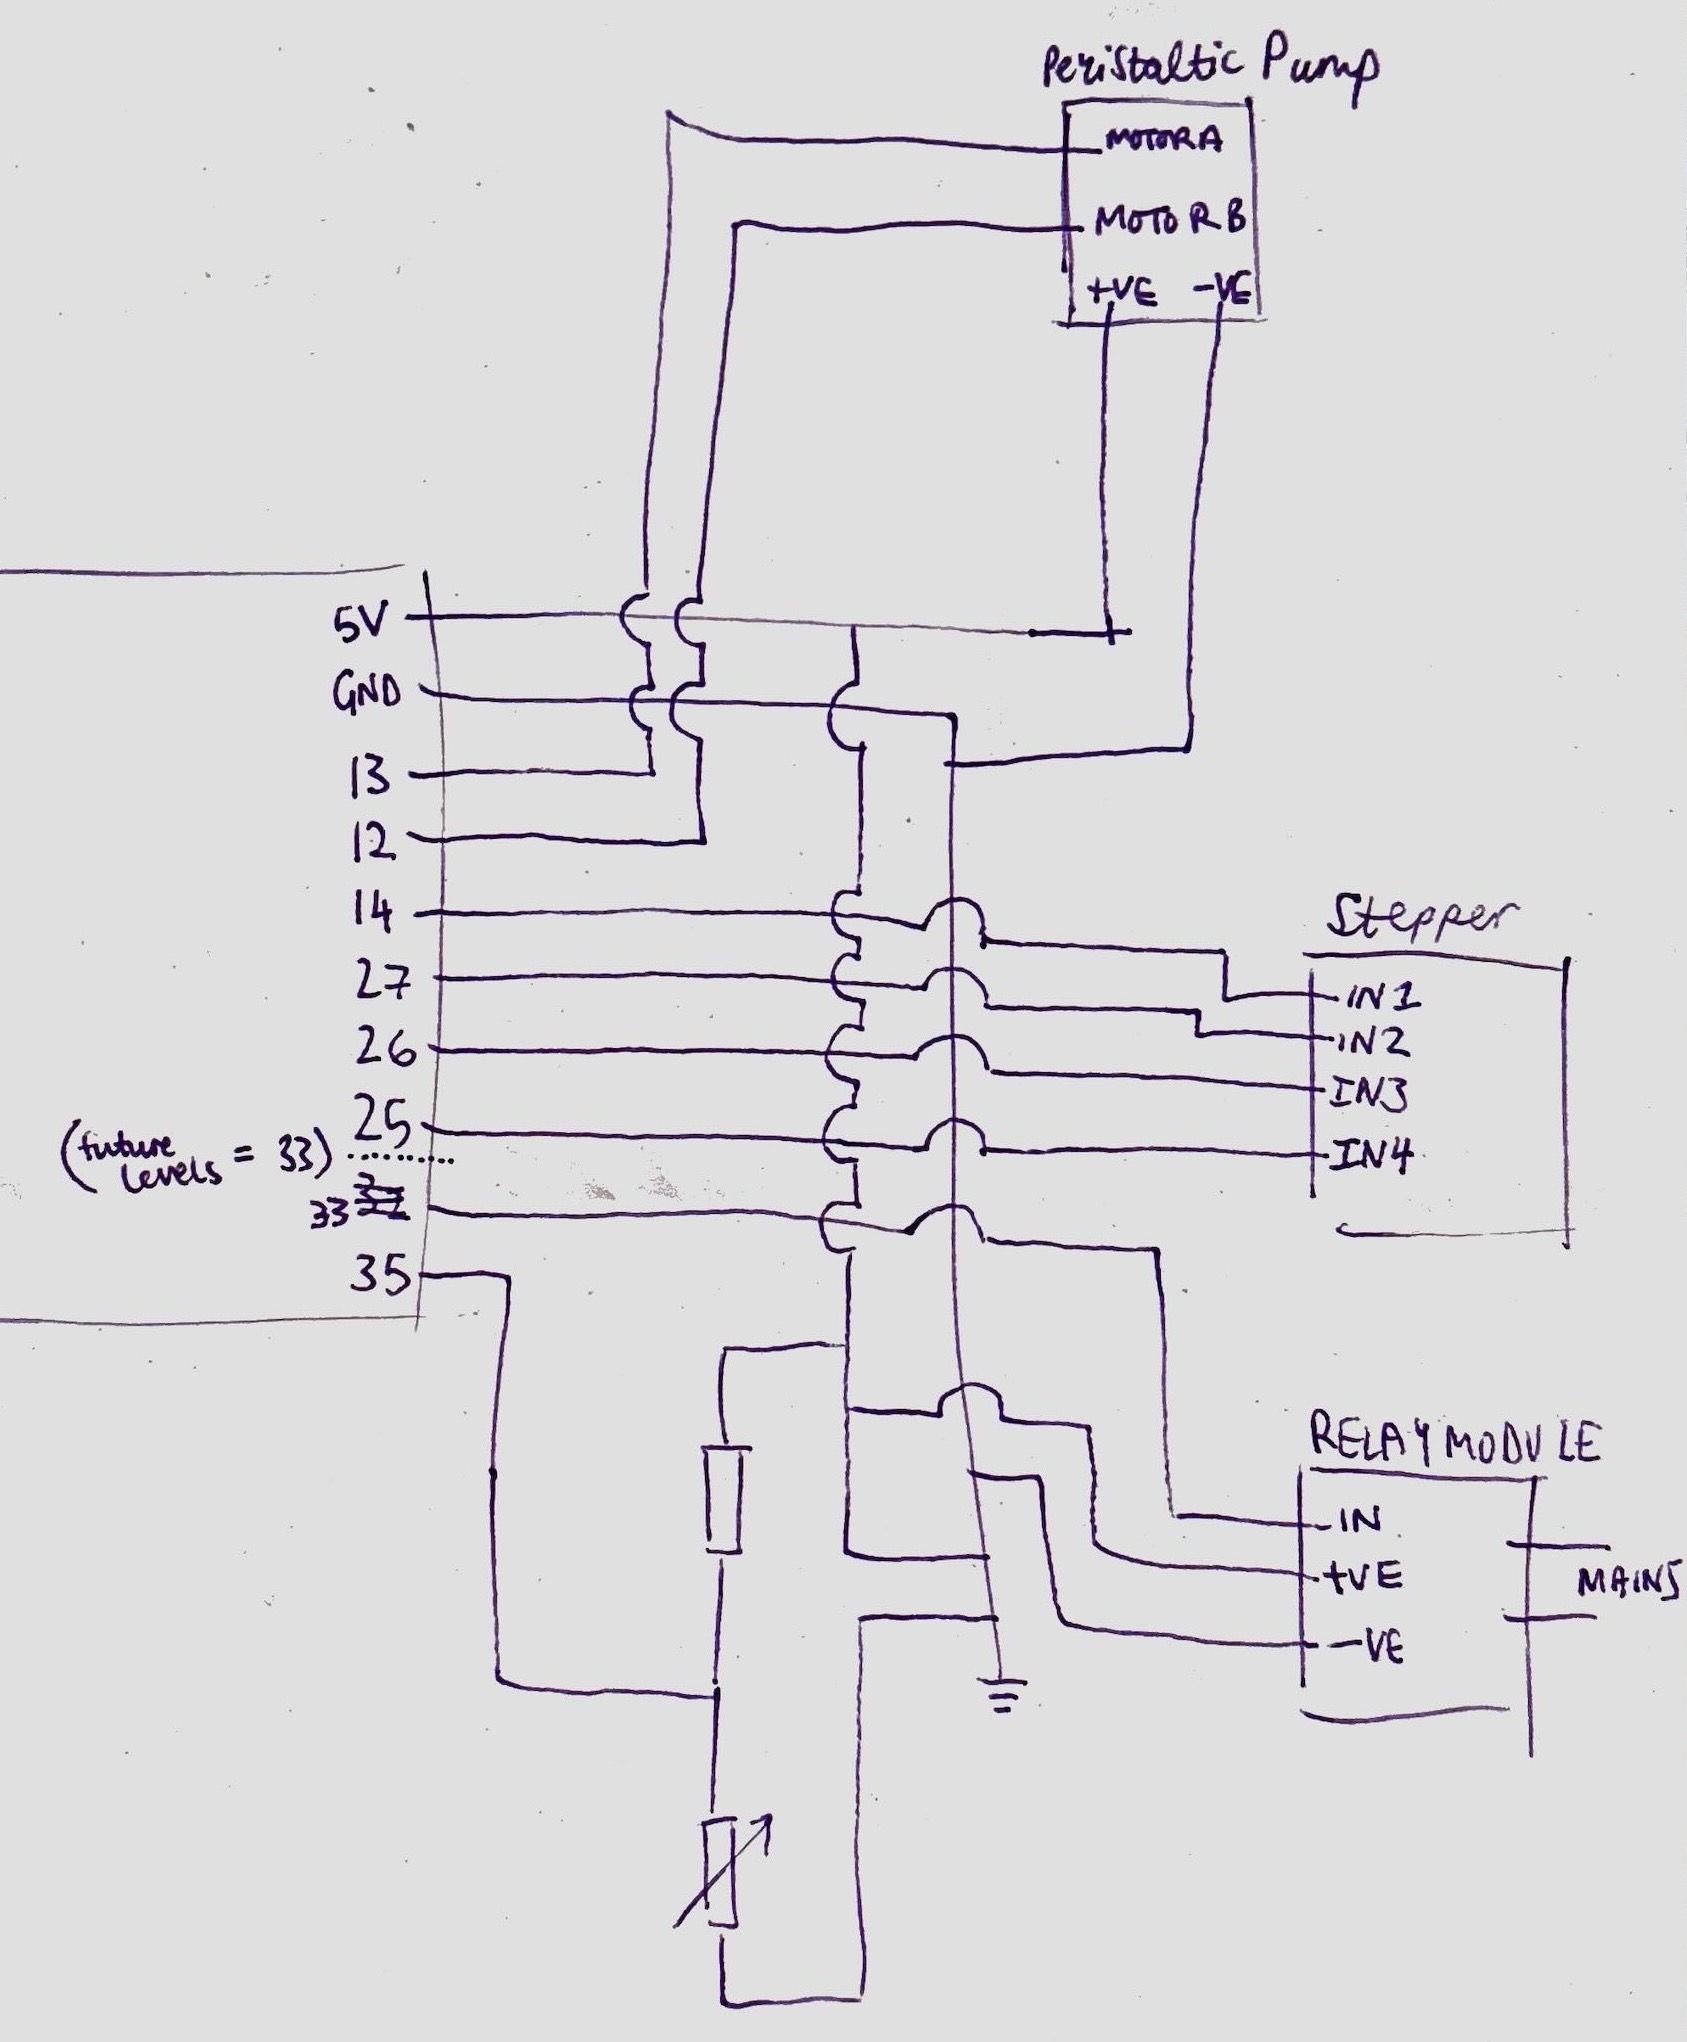 Peristaltic Pump
MOTOR A
MOTOR B
+VE -VE
5V
GND
13
12
14
27
26
25
(future levels = 33)
33
35
Stepper
IN1
IN2
IN3
IN4
RELAY MODULE
IN
+VE
-VE
MAINS